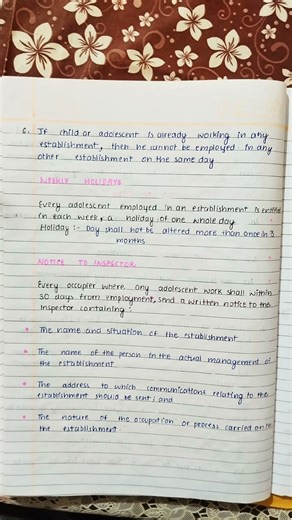 6. If child or adolescent is already working in any
establishment, then he cannot be employed in any
other establishment on the same day
WEEKLY HOLIDAYS
Every adolescent employed in an establishment is entitled
in each week, a holiday of one whole day.
Holiday :- Day shall not be altered more than once in 3
months
NOTICE TO INSPECTOR
Every occupier where any adolescent work shall within
30 days from employment, send a written notice to the
Inspector containing :
• The name and situation of the establishment
• The name of the person in the actual management of
the establishment
• The address to which communications relating to the
establishment should be sent ; and
• The nature of the occupation or process carried on in
the establishment.